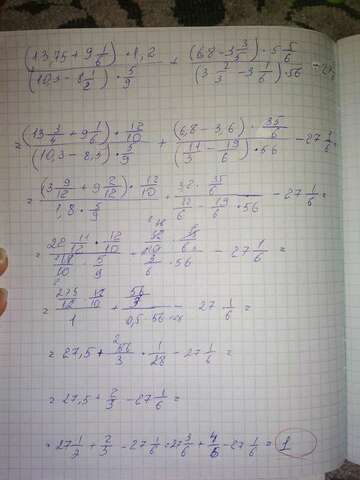 (13,75 + 9 1/6) · 1,2 / (10,3 - 8 1/2) · 5/9 + (6,8 - 3 3/5) · 5 5/6 / (3 2/3 - 3 1/6) · 56 - 27
= (13 3/4 + 9 1/6) · 12/10 / (10,3 - 8,5) · 5/9 + (6,8 - 3,6) · 35/6 / (11/3 - 19/6) · 56 - 27 1/6 =
= (3 9/12 + 9 2/12) · 12/10 / 1,8 · 5/9 + 3,2 · 35/6 / 22/6 - 19/6 · 56 - 27 1/6 =
= 22 11/12 · 12/10 / 18/10 · 5/9 + 32/10 · 35/6 / 3/6 · 56 - 27 1/6 =
= 275/12 · 12/10 / 1 + 56/3 / 0,5 · 56 - 27 1/6 =
= 27,5 + 56/3 · 1/28 - 27 1/6 =
= 27,5 + 2/3 - 27 1/6 =
= 27 1/2 + 2/3 - 27 1/6 = 27 3/6 + 4/6 - 27 1/6 = 1